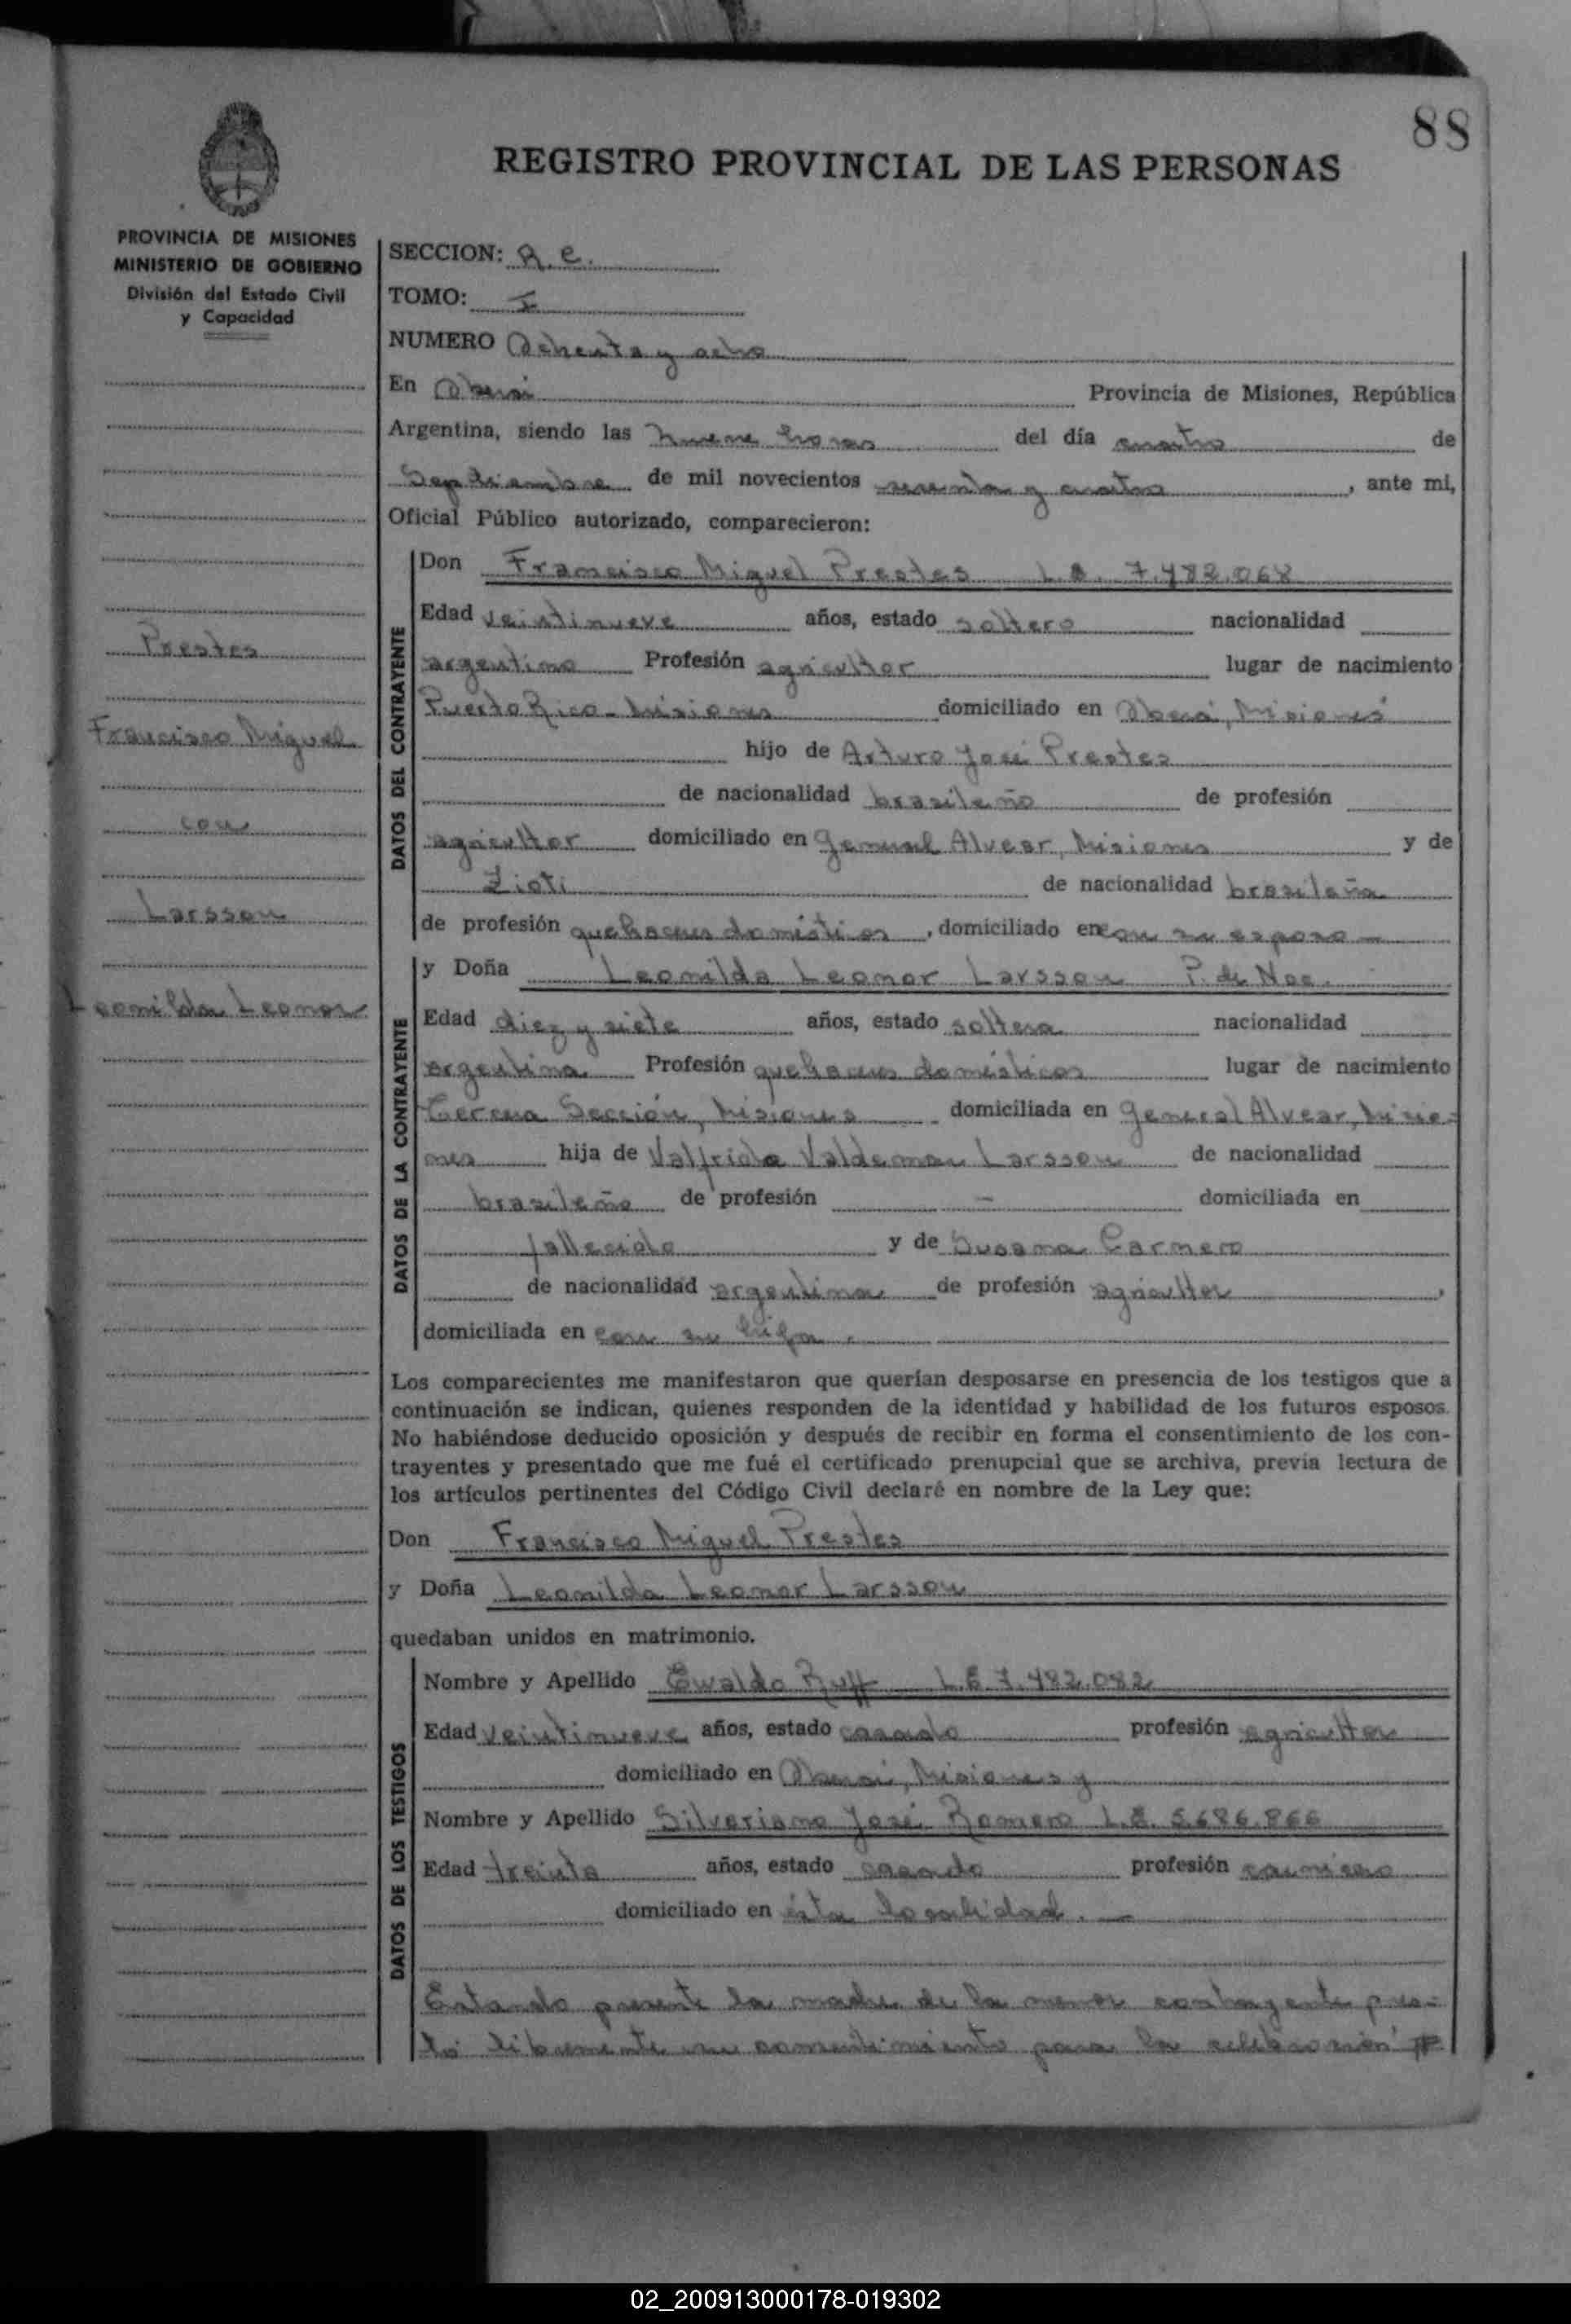 88
REGISTRO PROVINCIAL DE LAS PERSONAS
PROVINCIA DE MISIONES
MINISTERIO DE GOBIERNO
División del Estado Civil
y Capacidad
Prestes
Francisco Miguel
con
Larsson
Leonilda Leonor
SECCION: R. C.
TOMO: I
NUMERO Ochenta y ocho
En Oberá Provincia de Misiones, República
Argentina, siendo las nueve horas del día cuatro de
Septiembre de mil novecientos sesenta y cuatro, ante mi,
Oficial Público autorizado, comparecieron:
DATOS DEL CONTRAYENTE
Don Francisco Miguel Prestes L.E. 7.482.068
Edad veintinueve años, estado soltero nacionalidad
argentino Profesión agricultor lugar de nacimiento
Puerto Rico - Misiones domiciliado en Oberá, Misiones
hijo de Arturo José Prestes
de nacionalidad brasileño de profesión
agricultor domiciliado en General Alvear, Misiones y de
de nacionalidad brasileña
de profesión quehaceres domésticos, domiciliado en con su esposo -
DATOS DE LA CONTRAYENTE
y Doña Leonilda Leonor Larsson P. de Nac.
Edad diez y siete años, estado soltera nacionalidad
argentina Profesión quehaceres domésticos lugar de nacimiento
Tercera Sección, Misiones domiciliada en General Alvear, Misio-
nes hija de Valfrido Valdemar Larsson de nacionalidad
brasileño de profesión - domiciliada en
fallecido y de Susana Carnero
de nacionalidad argentina de profesión agricultor,
domiciliada en con su hija.
Los comparecientes me manifestaron que querían desposarse en presencia de los testigos que a
continuación se indican, quienes responden de la identidad y habilidad de los futuros esposos.
No habiéndose deducido oposición y después de recibir en forma el consentimiento de los con-
trayentes y presentado que me fué el certificado prenupcial que se archiva, previa lectura de
los artículos pertinentes del Código Civil declaré en nombre de la Ley que:
Don Francisco Miguel Prestes
y Doña Leonilda Leonor Larsson
quedaban unidos en matrimonio.
DATOS DE LOS TESTIGOS
Nombre y Apellido Ewaldo Ruff L.E. 7.482.082
Edad veintinueve años, estado casado profesión agricultor
domiciliado en Oberá, Misiones y
Nombre y Apellido Silveriano José Romero L.E. 5.686.866
Edad treinta años, estado casado profesión carnicero
domiciliado en ésta localidad. -
Estando presente la madre de la menor contrayente pres-
tó libremente su consentimiento para la celebración
02_200913000178-019302